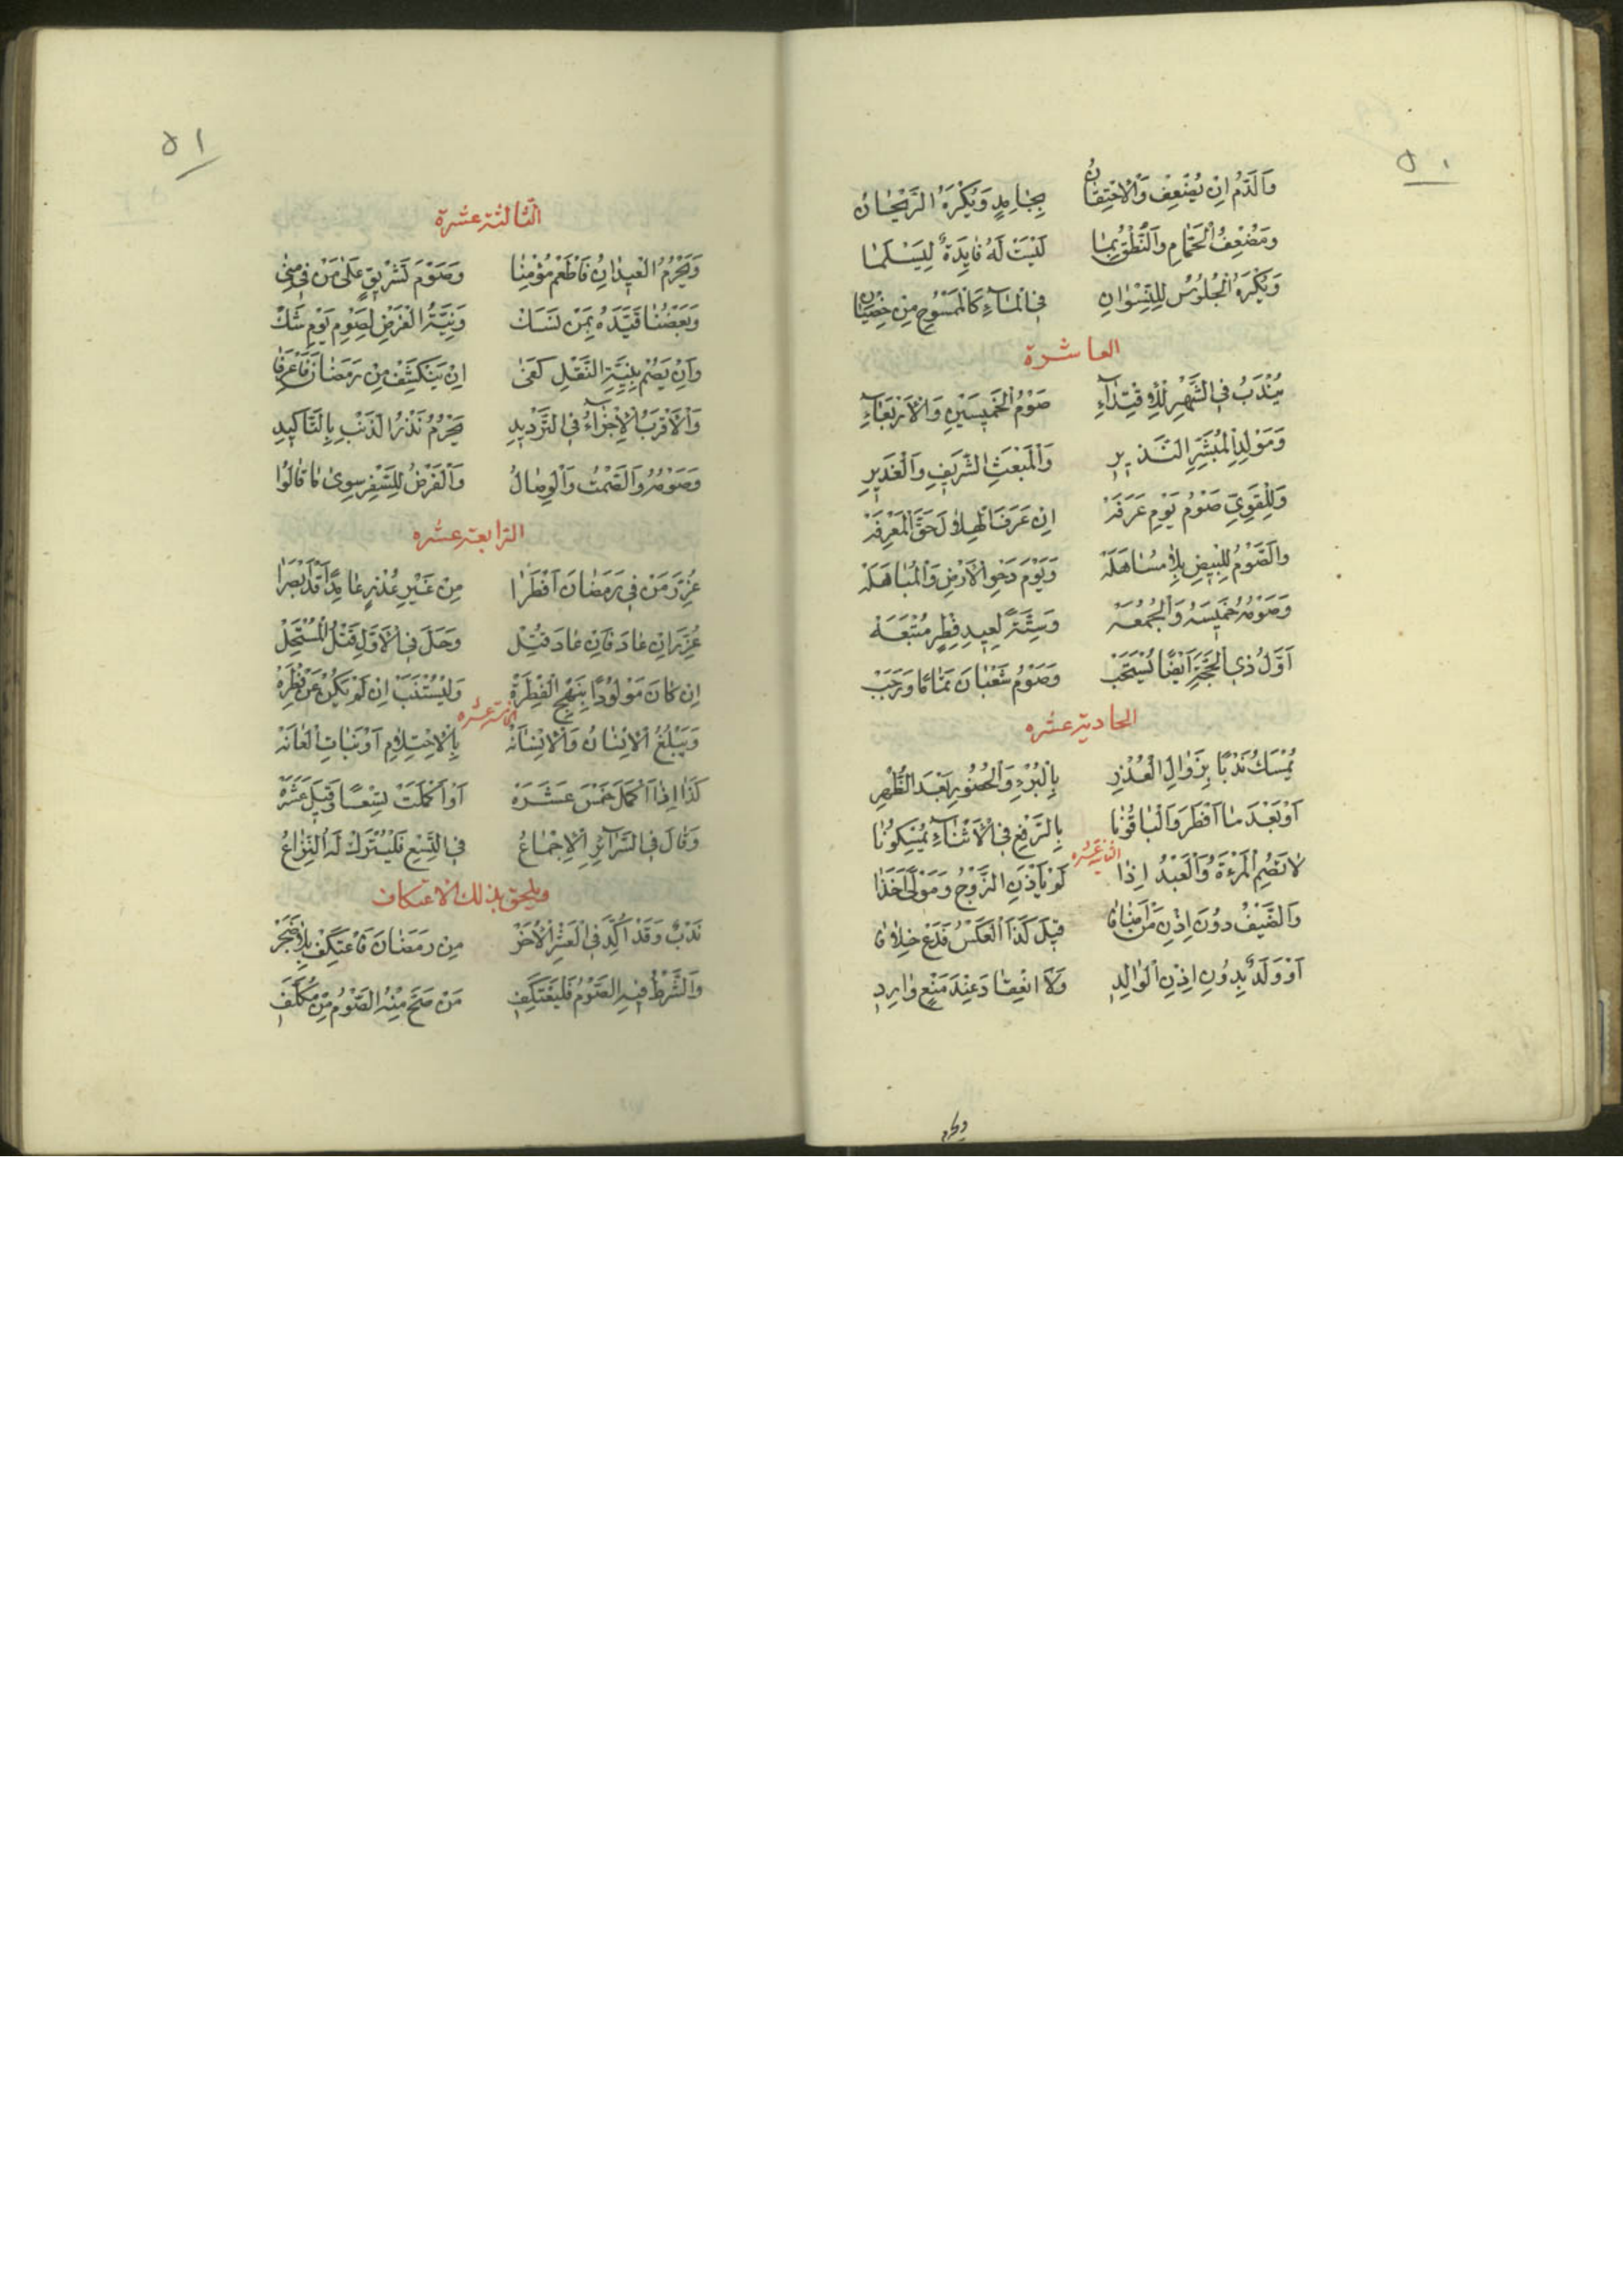 ٥٠
وَالدَّمُ اِنْ يُضْعِفْ وَالْاِحْتِقَانُ بِجَامِدٍ وَيُكْرَهُ الرَّيْحَانُ
وَمُضْعِفُ الْحَمَّامِ وَالنُّطْقُ بِمَا لَيْسَتْ لَهُ فَايِدَةٌ لِيَسْلَمَا
وَيُكْرَهُ الْجُلُوسُ لِلنِّسْوَانِ فِي الْمَاءِ كَالْمَمْسُوحِ مِنْ خِصْيَانِ
العاشرة
يُنْدَبُ فِي الشَّهْرِ لِذِي اقْتِدَآءِ صَوْمُ الْخَمِيسَيْنِ وَالْاَرْبَعَآءِ
وَمَوْلِدِ الْمُبَشِّرِ النَّذِيرِ وَالْمَبْعَثِ الشَّرِيفِ وَالْغَدِيرِ
وَلِلْقَوِيِّ صَوْمُ يَوْمِ عَرَفَهْ اِنْ عَرَفَ الْهِلَالَ حَقَّ الْمَعْرِفَهْ
وَالصَّوْمُ لِلْبِيضِ بِلَا مُسَاهَلَهْ وَيَوْمَ دَحْوِ الْاَرْضِ وَالْمُبَاهَلَهْ
وَصَوْمُهُ خَمِيسَهُ وَالْجُمُعَهْ وَسِتَّةً لِعِيدِ فِطْرٍ مُتْبَعَهْ
اَوَّلُ ذِي الْحِجَّةِ اَيْضًا يُسْتَحَبْ وَصَوْمُ شَعْبَانَ تَمَامًا وَرَجَبْ
الحادية عشره
يُمْسَكُ نَدْبًا بِزَوَالِ الْعُذْرِ بِالْبُرْءِ وَالْحُضُورِ بَعْدَ الظُّهْرِ
اَوْ بَعْدَ مَا اَفْطَرَ وَالْبَاقُونَا بِالرَّفْعِ فِي الْاَثْنَآءِ يُمْسِكُونَا
الثانية عشره
لَا تَصُمِ الْمَرْءَةُ وَالْعَبْدُ اِذَا لَمْ يَأْذَنِ الزَّوْجُ وَمَوْلًى اَخَذَا
وَالضَّيْفُ دُونَ اِذْنِ مَنْ اَضَافَا قِيلَ كَذَا الْعَكْسُ فَدَعْ خِلَافَا
اَوْ وَلَدٌ بِدُونِ اِذْنِ الْوَالِدِ وَلَا انْعِقَادَ عِنْدَ مَنْعٍ وَارِدِ
٥١
الثالثة عشرة
وَيَحْرُمُ الْعِيدَانِ فَاطْعَمْ مُؤْمِنَا وَصَوْمَ تَشْرِيقٍ عَلَى مَنْ فِي مِنَى
وَبَعْضُنَا قَيَّدَهُ بِمَنْ نَسَكْ وَنِيَّةُ الْفَرْضِ لِصَوْمِ يَوْمِ شَكْ
وَاِنْ يَصُمْ بِنِيَّةِ النَّفْلِ كَفَى اِنْ يَنْكَشِفْ مِنْ رَمَضَانَ فَاعْرِفَا
وَالْاَقْرَبُ الْاِجْزَآءُ فِي التَّرْدِيدِ يَحْرُمُ نَذْرُ الذَّنْبِ بِالتَّاكِيدِ
وَصَوْمُهُ وَالصَّمْتُ وَالْوِصَالُ وَالْفَرْضُ لِلسَّفْرِ سِوَى مَا قَالُوا
الرابعة عشره
عُزِّرَ مَنْ فِي رَمَضَانَ اَفْطَرَا مِنْ غَيْرِ عُذْرٍ عَامِدًا قَدْ اَبْصَرَا
عُزِّرَ اِنْ عَادَ فَاِنْ عَادَ قُتِلْ وَحَلَّ فِي الْاَوَّلِ قَتْلُ الْمُسْتَحِلْ
اِنْ كَانَ مَوْلُودًا بِنَهْجِ الْفِطْرَةْ وَلْيُسْتَتَبْ اِنْ لَمْ يَكُنْ عَنْ فِطْرَهْ
الخامسة عشره
وَيَبْلُغُ الْاِنْسَانُ وَالْاِنْسَانَهْ بِالْاِحْتِلَامِ اَوْ نَبَاتِ الْعَانَهْ
كَذَا اِذَا اَكْمَلَ خَمْسَ عَشَرَهْ اَوْ اَكْمَلَتْ تِسْعًا وَقِيلَ عَشَرَهْ
وَقَالَ فِي السَّرَآئِرِ الْاِجْمَاعُ فِي التِّسْعِ فَلْيُتْرَكْ لَهُ النِّزَاعُ
ويلحق بذلك الاعتكاف
نَدْبٌ وَقَدْ اُكِّدَ فِي الْعَشْرِ الْاُخَرْ مِنْ رَمَضَانَ فَاعْتَكِفْ بِلَا ضَجَرْ
وَالشَّرْطُ فِيهِ الصَّوْمُ فَلْيَعْتَكِفِ مَنْ صَحَّ مِنْهُ الصَّوْمُ مِنْ مُكَلَّفِ